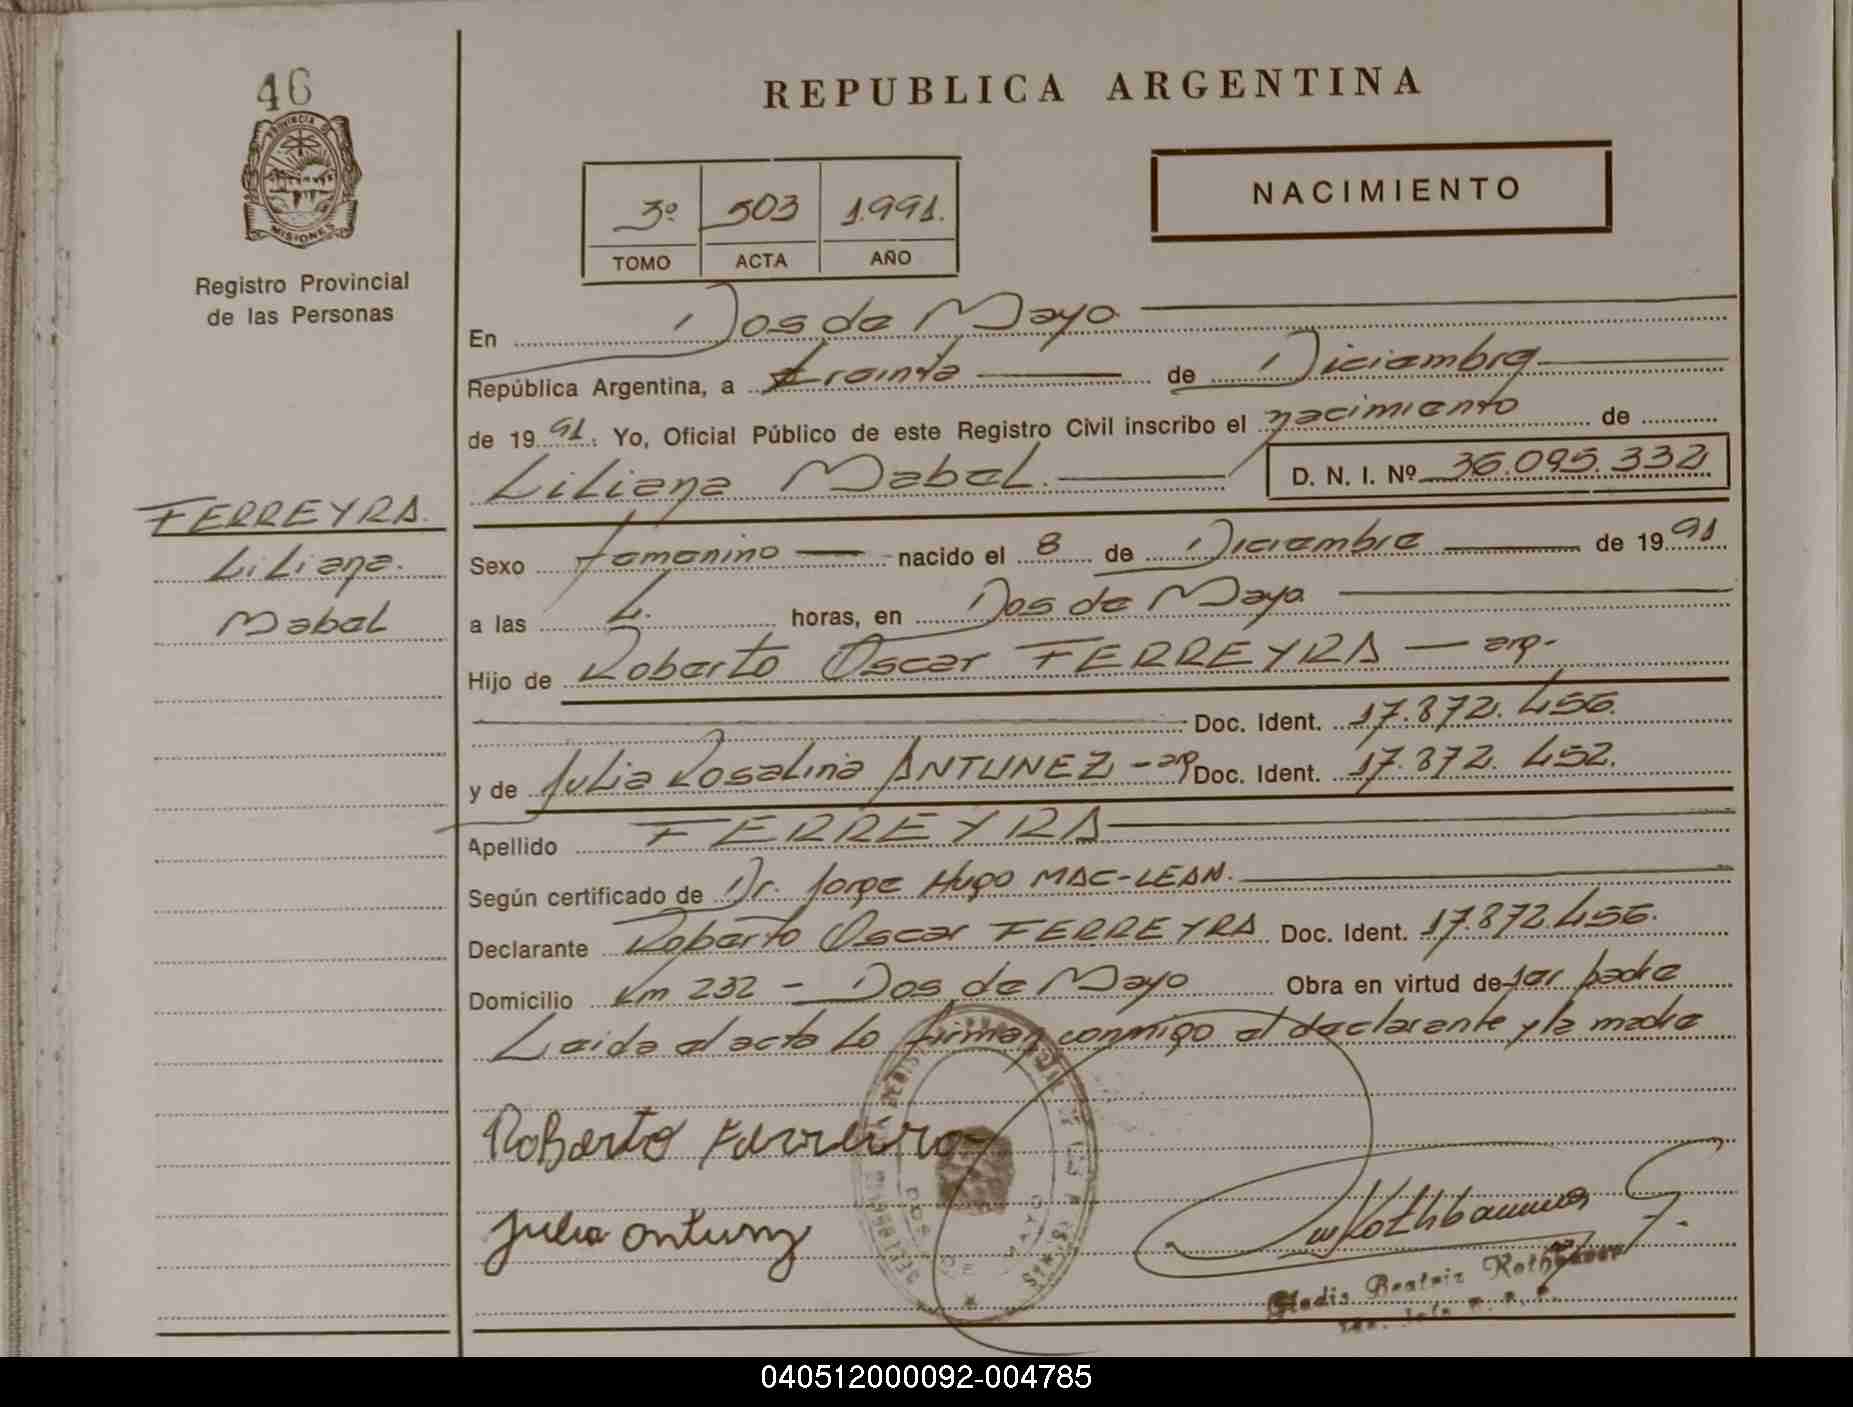 46
PROVINCIA DE
MISIONES
Registro Provincial
de las Personas
FERREYRA.
Liliana.
Mabel
REPUBLICA ARGENTINA
3º 503 1.991.
TOMO ACTA AÑO
NACIMIENTO
En Dos de Mayo
República Argentina, a treinta de Diciembre
de 1991. Yo, Oficial Público de este Registro Civil inscribo el nacimiento de
Liliana Mabel. D. N. I. Nº 36.095.332
Sexo femenino nacido el 8 de Diciembre de 1991
a las 4. horas, en Dos de Mayo
Hijo de Roberto Oscar FERREYRA — arg.
Doc. Ident. 17.872.456.
y de Julia Rosalina ANTUNEZ - arg Doc. Ident. 17.872.452.
Apellido FERREYRA
Según certificado de Dr. Jorge Hugo MAC-LEAN.
Declarante Roberto Oscar FERREYRA Doc. Ident. 17.872.456.
Domicilio Km 232 - Dos de Mayo Obra en virtud de ser padre
Leida el acta lo firman conmigo el declarante y la madre
Roberto Ferreyra
Julia Antunz
Rothbauer
Gladis Beatriz Rothbauer
040512000092-004785